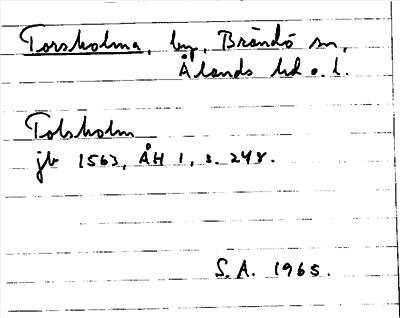 Torsholma, by, Brändö sn,
Ålands hd o. l.
Tolsholm
jb 1563, ÅH 1, s. 248.
S.A. 1965.